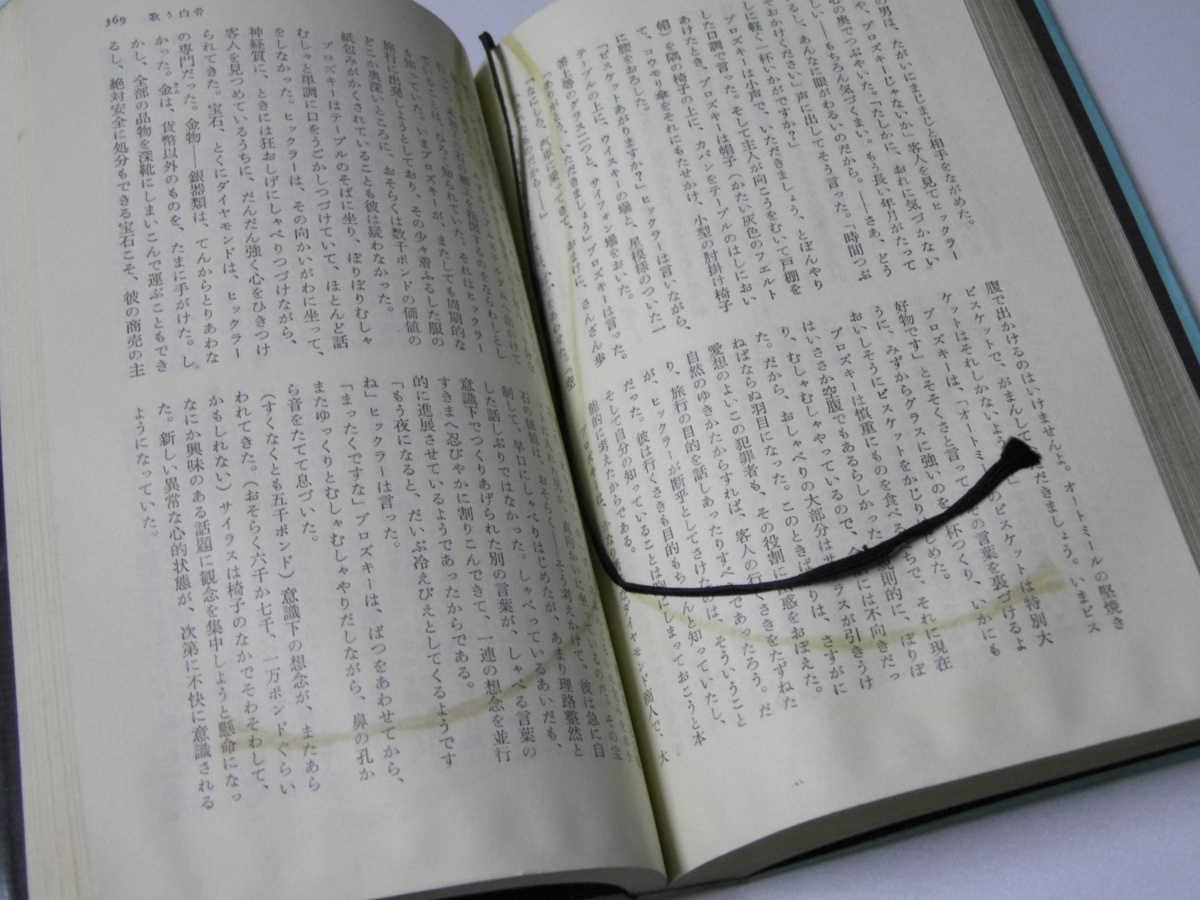 の男は、たがいにまじまじと相手をながめた。
や、ブロズキーじゃないか」客人を見てヒックラー
心の奥でつぶやいた。「たしかに、おれに気づかない
しい――もちろん気づくまい。もう長い年月がたって
るし、あんなに眼がわるいのだから。――さあ、どう
ぞおかけください」声に出してそう言った。「時間つぶ
しに軽く一杯いかがですか？」
ブロズキーは小声で、いただきましょう、とぼんやり
した口調で言った。そして主人が向こうをむいて戸棚を
あけたとき、ブロズキーは帽子（かたい灰色のフェルト
帽）を隅の椅子の上に、カバンをテーブルのはしにおい
て、コウモリ傘をそれにもたせかけ、小型の肘掛け椅子
に腰をおろした。
「ビスケットあがりますか？」ヒックラーは言いながら、
テーブルの上に、ウィスキーの壜と、星模様のついた一
番上等のグラス二つと、サイフォン壜をおいた。
「ありがとう、いただきましょう」ブロズキーは言った。
「なにしろ、汽車に乗ってきて、おまけに、さんざん歩
腹で出かけるのはいけませんよ。オートミールの堅焼き
ビスケットで、がまんして
ただきましょう。いまビス
ケットはそれしかないよ
ブロズキーは、「オートミー
のビスケットは特別大
好物です」とそそくさと言って
の言葉を裏づけるよ
うに、みずからグラスに強いのを一杯つくり、いかにも
おいしそうにビスケットをかじりはじめた。
ブロズキーは慎重にものを食べる
規則的に、ぽりぽ
はいささか空腹でもあるらしかった
ちで、それに現在
り、むしゃむしゃやっているので、
には不向きだっ
た。だから、おしゃべりの大部分はサイラスが引きうけ
ねばならぬ羽目になった。このときばかりは、さすがに
愛想のよいこの犯罪者も、その役割に困惑をおぼえた。
自然のゆきかたからすれば、客人の行くさきをたずねた
り、旅行の目的を話しあったりすべきであったろう。だ
が、ヒックラーが断乎としてさけたのは、そういうこと
だった。彼は行くさきも目的もちゃんと知っていたし、
そして自分の知っていることは胸にしまっておこうと本
能的に考えたからである。
ダイヤモンド商人で、大
も知っていた。ひろく知られていた。それはヒックラー
ていた。いまブロズキーが、またしても周期的な
旅行に出発しようとしており、その少々着ふるした服の
どこか奥深いところに、おそらくは数千ポンドの価値の
紙包みがかくされていることも彼は疑わなかった。
ブロズキーはテーブルのそばに坐り、ぽりぽりむしゃ
むしゃと単調に口をうごかしつづけていて、ほとんど話
をしなかった。ヒックラーは、その向かいがわに坐って、
神経質に、ときには狂おしげにしゃべりつづけながら、
客人を見つめているうちに、だんだん強く心をひきつけ
られてきた。宝石、とくにダイヤモンドは、ヒックラー
の専門だった。金物――銀器類は、てんからとりあわな
かった。金は、貨幣以外のものを、たまに手がけた。し
かし、全部の品物を深靴にしまいこんで運ぶこともでき
るし、絶対安全に処分もできる宝石こそ、彼の商売の主
石の価値は、おそらく――そう考えかけて、彼は急に自
制して、早口にしゃべりはじめたが、あまり理路整然と
した話しぶりではなかった。しゃべっているあいだも、
意識下でつくりあげられた別の言葉が、しゃべる言葉の
すきまへ忍びやかに割りこんできて、一連の想念を並行
的に進展させているようであったからである。
「もう夜になると、だいぶ冷えびえとしてくるようです
ね」ヒックラーは言った。
「まったくですな」ブロズキーは、ばつをあわせてから、
またゆっくりとむしゃむしゃやりだしながら、鼻の孔か
ら音をたてて息づいた。
（すくなくとも五千ポンド）意識下の想念が、またあら
われてきた。（おそらく六千か七千、一万ポンドぐらい
かもしれない）サイラスは椅子のなかでそわそわして、
なにか興味のある話題に観念を集中しようと懸命になっ
た。新しい異常な心的状態が、次第に不快に意識される
ようになっていた。
369 歌う白骨